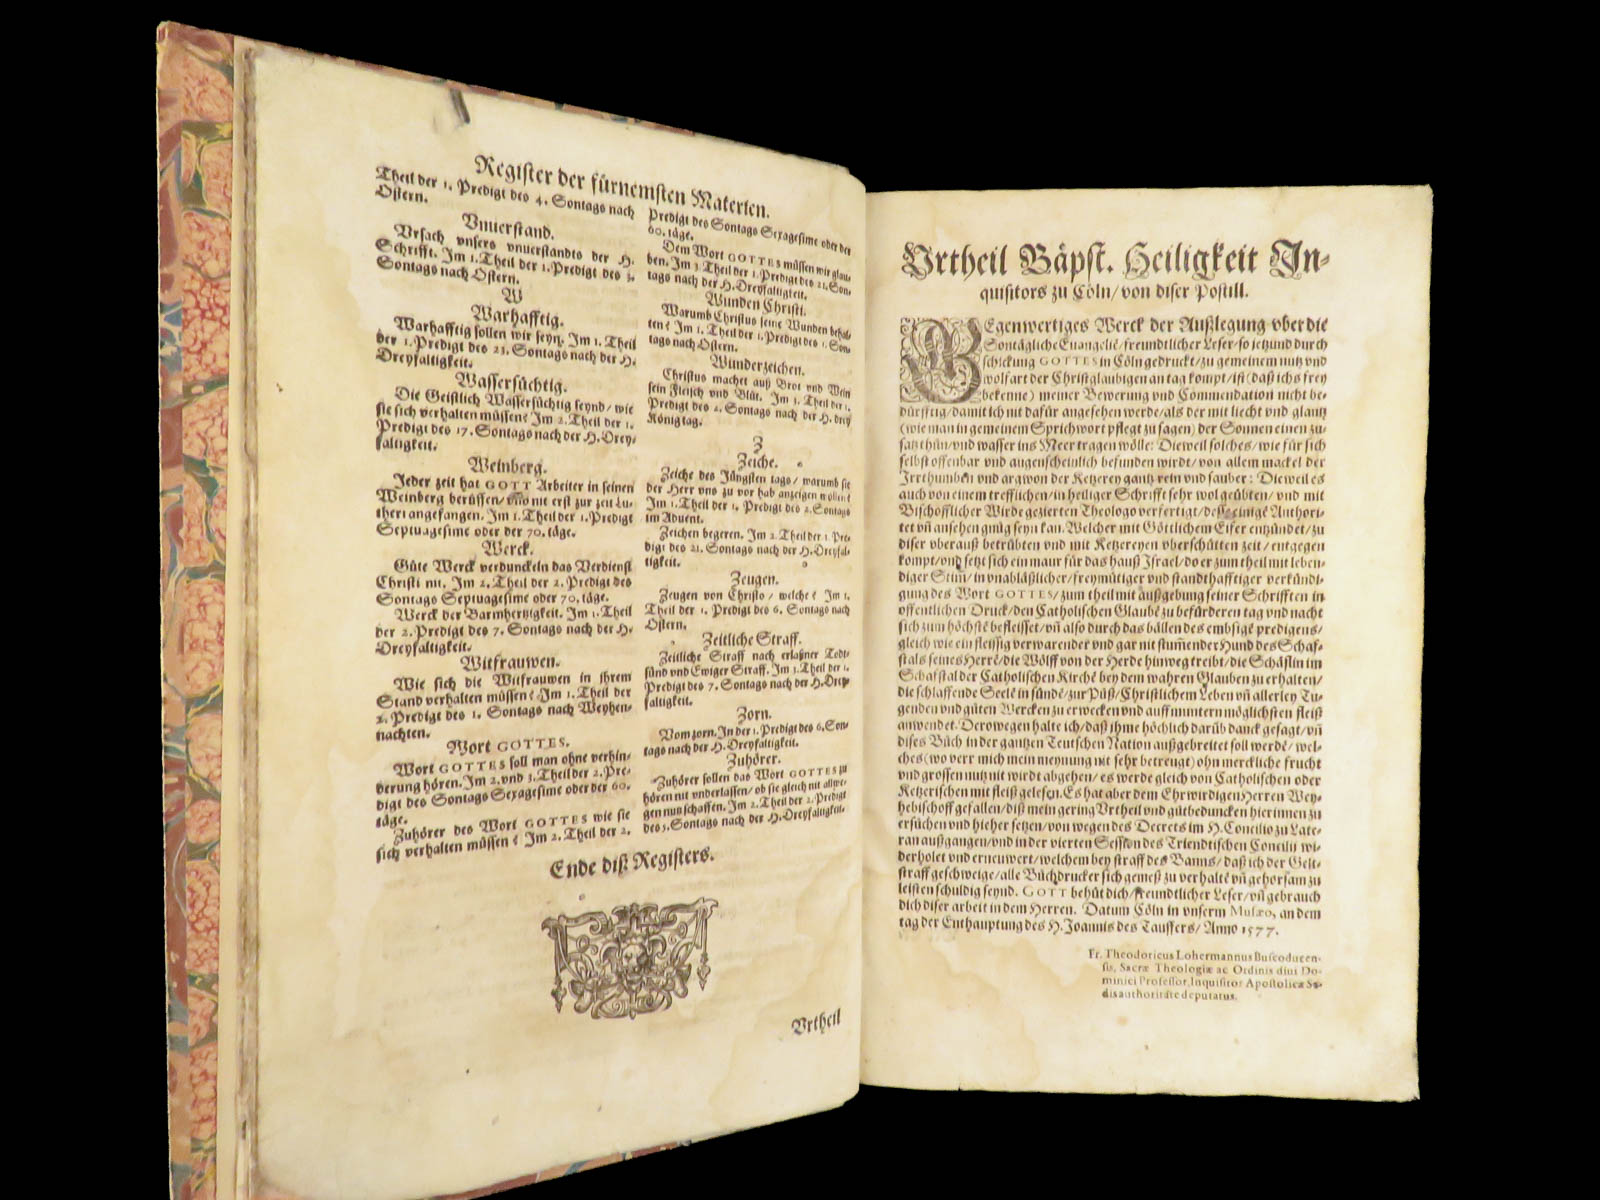 Register der fürnemsten Materien.
Theil der 1. Predigt des 4. Sontags nach
Ostern.
Vnuerstand.
Vrsach vnsers vnuerstandts der H.
Schrifft. Im 1. Theil der 1. Predigt des 3.
Sontags nach Ostern.
W
Warhafftig.
Warhafftig sollen wir seyn. Im 1. Theil
der 1. Predigt des 21. Sontags nach der H.
Dreyfaltigkeit.
Wassersüchtig.
Die Geistlich Wassersüchtig seynd/ wie
sie sich verhalten müssen? Im 2. Theil der 1.
Predigt des 17. Sontags nach der H. Drey-
faltigkeit.
Weinberg.
Jeder zeit hat GOTT Arbeiter in seinen
Weinberg berüffen/ vnd nit erst zur zeit Lu-
theri angefangen. Im 1. Theil der 1. Predigt
Septuagesime oder der 70. täge.
Werck.
Güte Werck verdunckeln das Verdienst
Christi nit. Im 2. Theil der 2. Predigt des
Sontags Septuagesime oder 70. täge.
Werck der Barmhertzigkeit. Im 1. Theil
der 2. Predigt des 7. Sontags nach der H.
Dreyfaltigkeit.
Witfrauwen.
Wie sich die Witfrauwen in ihrem
Stand verhalten müssen? Im 1. Theil der
2. Predigt des 1. Sontags nach Weyhen-
nachten.
Wort GOTTES.
Wort GOTTES soll man ohne verhin-
derung hören. Im 2. vnd 3. Theil der 2. Pre-
digt des Sontags Sexagesime oder der 60.
täge.
Zuhörer des Wort GOTTES wie sie
sich verhalten müssen? Im 2. Theil der 2.
Predigt des Sontags Sexagesime oder der
60. täge.
Dem Wort GOTTES müssen wir glau-
ben. Im 3. Theil der 1. Predigt des 21. Son-
tags nach der H. Dreyfaltigkeit.
Wunden Christi.
Warumb Christus seine Wunden behal-
ten? Im 1. Theil der 1. Predigt des 1. Son-
tags nach Ostern.
Wunderzeichen.
Christus machet auß Brot vnd Wein
sein Fleisch vnd Blůt. Im 1. Theil der 1.
Predigt des 2. Sontags nach der H. drey
König tag.
Z
Zeiche.
Zeiche des Jüngsten tags/ warumb sie
der Herr vns zu vor hab anzeigen wollen?
Im 1. Theil der 1. Predigt des 2. Sontags
im Aduent.
Zeichen begeren. Im 2. Theil der 1. Pre-
digt des 21. Sontags nach der H. Dreyfal-
tigkeit.
Zeugen.
Zeugen von Christo/ welche? Im 1.
Theil der 1. Predigt des 6. Sontags nach
Ostern.
Zeitliche Straff.
Zeitliche Straff nach erlaßner Todt-
sünd vnd Ewiger Straff. Im 3. Theil der 1.
Predigt des 7. Sontags nach der H. Drey-
faltigkeit.
Zorn.
Vom zorn. In der 1. Predigt des 6. Son-
tags nach der H. Dreyfaltigkeit.
Zuhörer.
Zuhörer sollen das Wort GOTTES zu
hören nit vnderlassen/ ob sie gleich nit allwe-
gen nutz schaffen. Im 2. Theil der 2. Predigt
des 5. Sontags nach der H. Dreyfaltigkeit.
Ende diß Registers.
Vrtheil
Vrtheil Bäpst. Heiligkeit In-
quisitors zu Cöln/ von diser Postill.
GEgenwertiges Werck der Außlegung vber die
Sontägliche Euangelië/ freundtlicher Leser/ so jetzund durch
schickung GOTTES in Cöln gedruckt/ zu gemeinem nutz vnd
wolfart der Christglaubigen an tag kompt/ ist (daß ichs frey
bekenne) meiner Bewerung vnd Commendation nicht be-
dürfftig/ damit ich nit dafür angesehen werde/ als der mit liecht vnd glantz
(wie man in gemeinem Sprichwort pflegt zu sagen) der Sonnen einen zu-
satz thůn/ vnd wasser ins Meer tragen wölle: Dieweil solches/ wie für sich
selbst offenbar vnd augenscheinlich befunden wirdt/ von allem mackel der
Irrthumben vnd argwon der Ketzerey gantz rein vnd sauber: Dieweil es
auch von einem trefflichen/ in heiliger Schrifft sehr wol geübten/ vnd mit
Bischöfflicher Wirde gezierten Theologo verfertigt/ dessen einigē Authori-
tet vn̄ ansehen gnůg seyn kan. Welcher mit Göttlichem Eifer entzündet/ zu
diser vberauß betrübten vnd mit Ketzereyen vberschütten zeit/ entgegen
kompt/ vnd setzt sich ein maur für das hauß Israel/ do er zum theil mit leben-
diger Stim̄/ in vnabläßlicher/ freymütiger vnd standthafftiger verkündi-
gung des Wort GOTTES/ zum theil mit außgebung seiner Schrifften in
offentlichen Druck/ den Catholischen Glaubē zu befürderen tag vnd nacht
sich zum höchstē befleisset/ vn̄ also durch das bällen des embsigē predigens/
gleich wie ein fleissig verwarender vnd gar nit stum̄ender Hund des Schaf-
stals seines Herrē/ die Wölff von der Herde hinweg treibt/ die Schäflin im
Schafstal der Catholischen Kirchē bey dem wahren Glauben zu erhalten/
die schlaffende Seelē in sündē/ zur Půß/ Christlichem Leben vn̄ allerley Tu-
genden vnd gůten Wercken zu erwecken vnd auffmuntern möglichsten fleiß
anwendet. Derowegen halte ich/ daß ihme höchlich darūb danck gesagt/ vn̄
dises Bůch in der gantzen Teutschen Nation außgebreitet soll werdē/ wel-
ches (wo verr mich mein meynung nit sehr betreugt) ohn merckliche frucht
vnd grossen nutz nit wirdt abgehen/ es werde gleich von Catholischen oder
Ketzerischen mit fleiß gelesen. Es hat aber dem Ehrwirdigen Herren Wey-
hebischoff gefallen/ diß mein gering Vrtheil vnd gůtbeduncken hierinnen zu
ersůchen vnd hieher setzen/ von wegen des Decrets im H. Concilio zu Late-
ran außgangen/ vnd in der vierten Session des Triendtischen Concilii wi-
derholet vnd erneuwert/ welchem bey straff des Banns/ daß ich der Gelt-
straff geschweige/ alle Bůchdrucker sich gemeß zu verhaltē vn̄ gehorsam zu
leisten schuldig seynd. GOTT behůt dich/ freundtlicher Leser/ vn̄ gebrauch
dich diser arbeit in dem Herren. Datum Cöln in vnserm Musæo, an dem
tag der Enthauptung des H. Joannis des Tauffers/ Anno 1577.
Fr. Theodoricus Lohermannus Buscoducen-
sis, Sacræ Theologiæ ac Ordinis diui Do-
minici Professor, Inquisitor Apostolicæ Se-
dis authoritate deputatus.